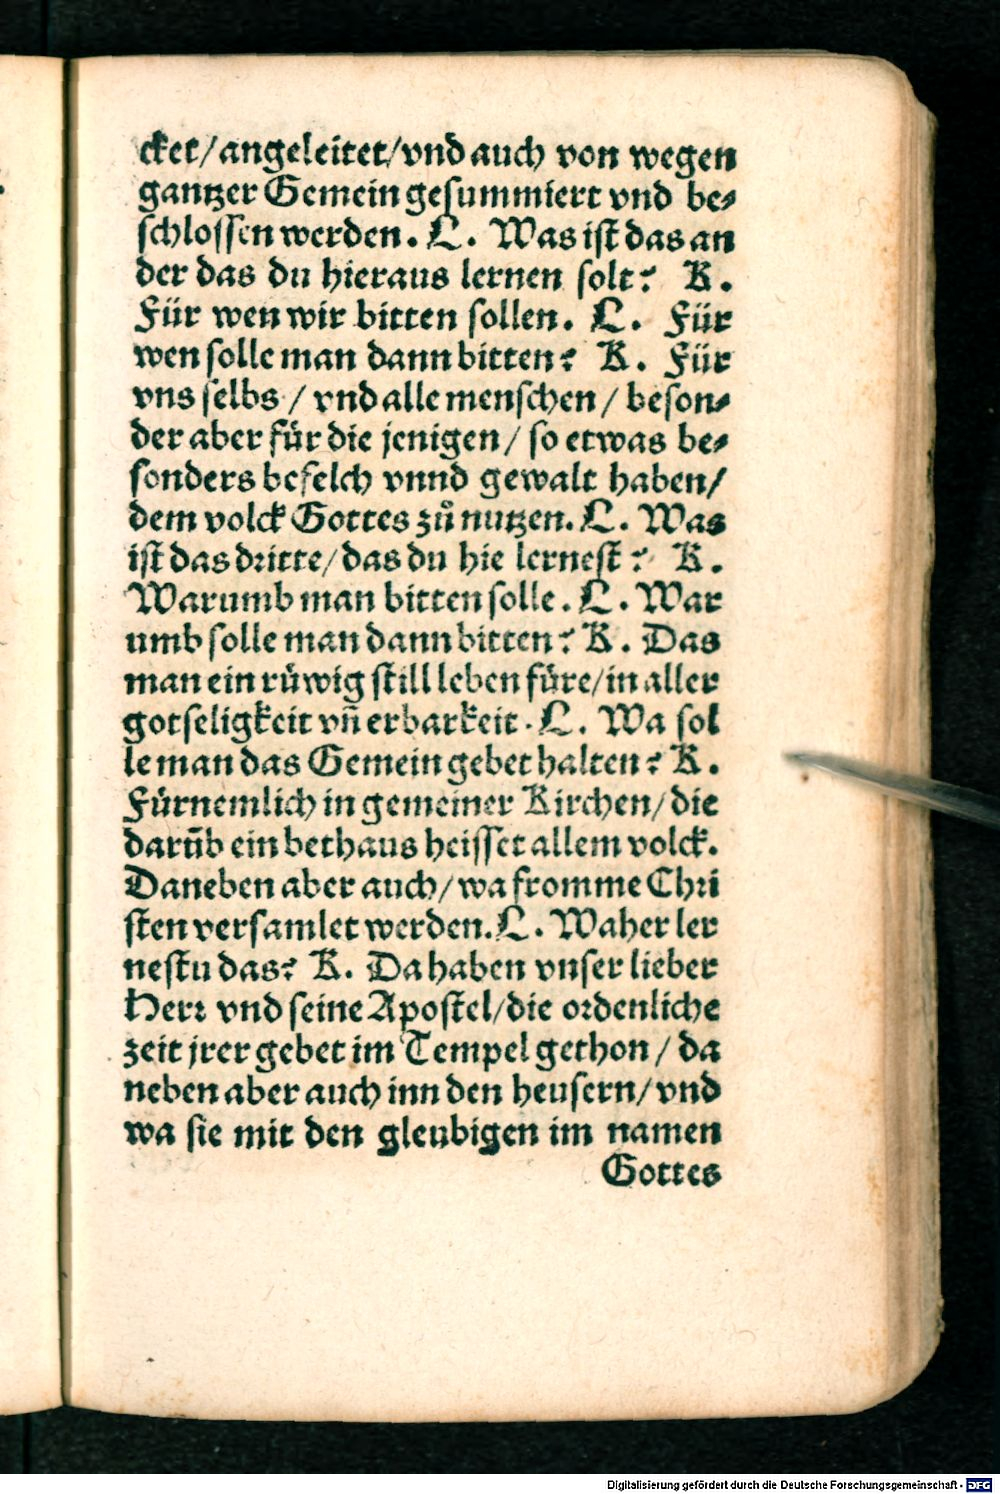 cket/angeleitet/vnd auch von wegen
gantzer Gemein gesummiert vnd be⸗
schlossen werden. L. Was ist das an
der das du hieraus lernen solt? K.
Für wen wir bitten sollen. L. Für
wen solle man dann bitten? K. Für
vns selbs / vnd alle menschen / beson⸗
der aber für die jenigen / so etwas be⸗
sonders befelch vnnd gewalt haben/
dem volck Gottes zů nutzen. L. Was
ist das dritte/das du hie lernest? K.
Warumb man bitten solle. L. War
umb solle man dann bitten? K. Das
man ein rüwig still leben füre/in aller
gotseligkeit vñ erbarkeit. L. Wa sol
le man das Gemein gebet halten? K.
Fürnemlich in gemeiner Kirchen/die
darūb ein bethaus heisset allem volck.
Daneben aber auch/wa fromme Chri
sten versamlet werden. L. Waher ler
nestu das? K. Da haben vnser lieber
Herr vnd seine Apostel/die ordenliche
zeit jrer gebet im Tempel gethon / da
neben aber auch inn den heusern/vnd
wa sie mit den gleubigen im namen
Gottes
Digitalisierung gefördert durch die Deutsche Forschungsgemeinschaft - DFG